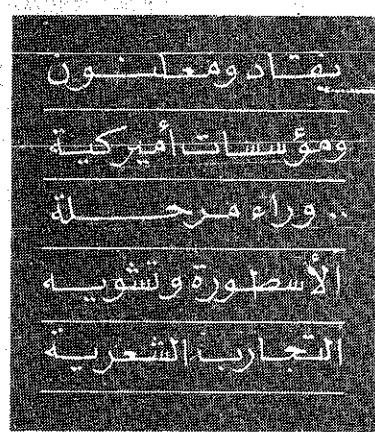 نقاد ومعلنون
ومؤسسات أميركية
.. وراء مرحلة
الأسطورة وتشويه
التجارب الشعرية